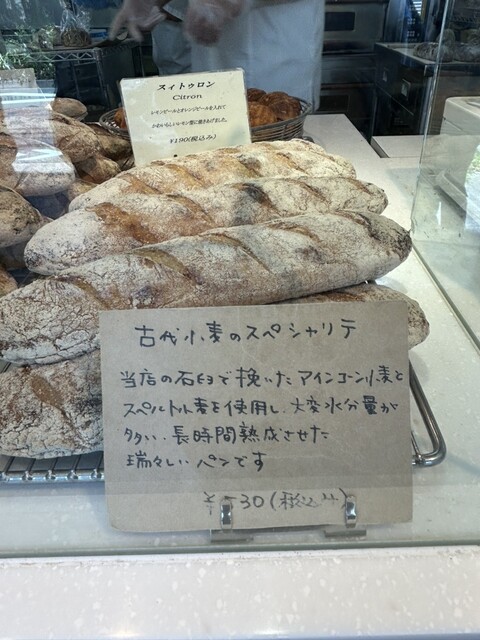 スィトゥロン
Citron
レモンピールとオレンジピールを入れて
かわいらしいレモン型に焼きあげました。
¥190(税込み)
古代小麦のスペシャリテ
当店の石臼で挽いたアインコーン小麦と
スペルト小麦を使用し、大変水分量が
多い、長時間熟成させた
瑞々しいパンです
(税込み)